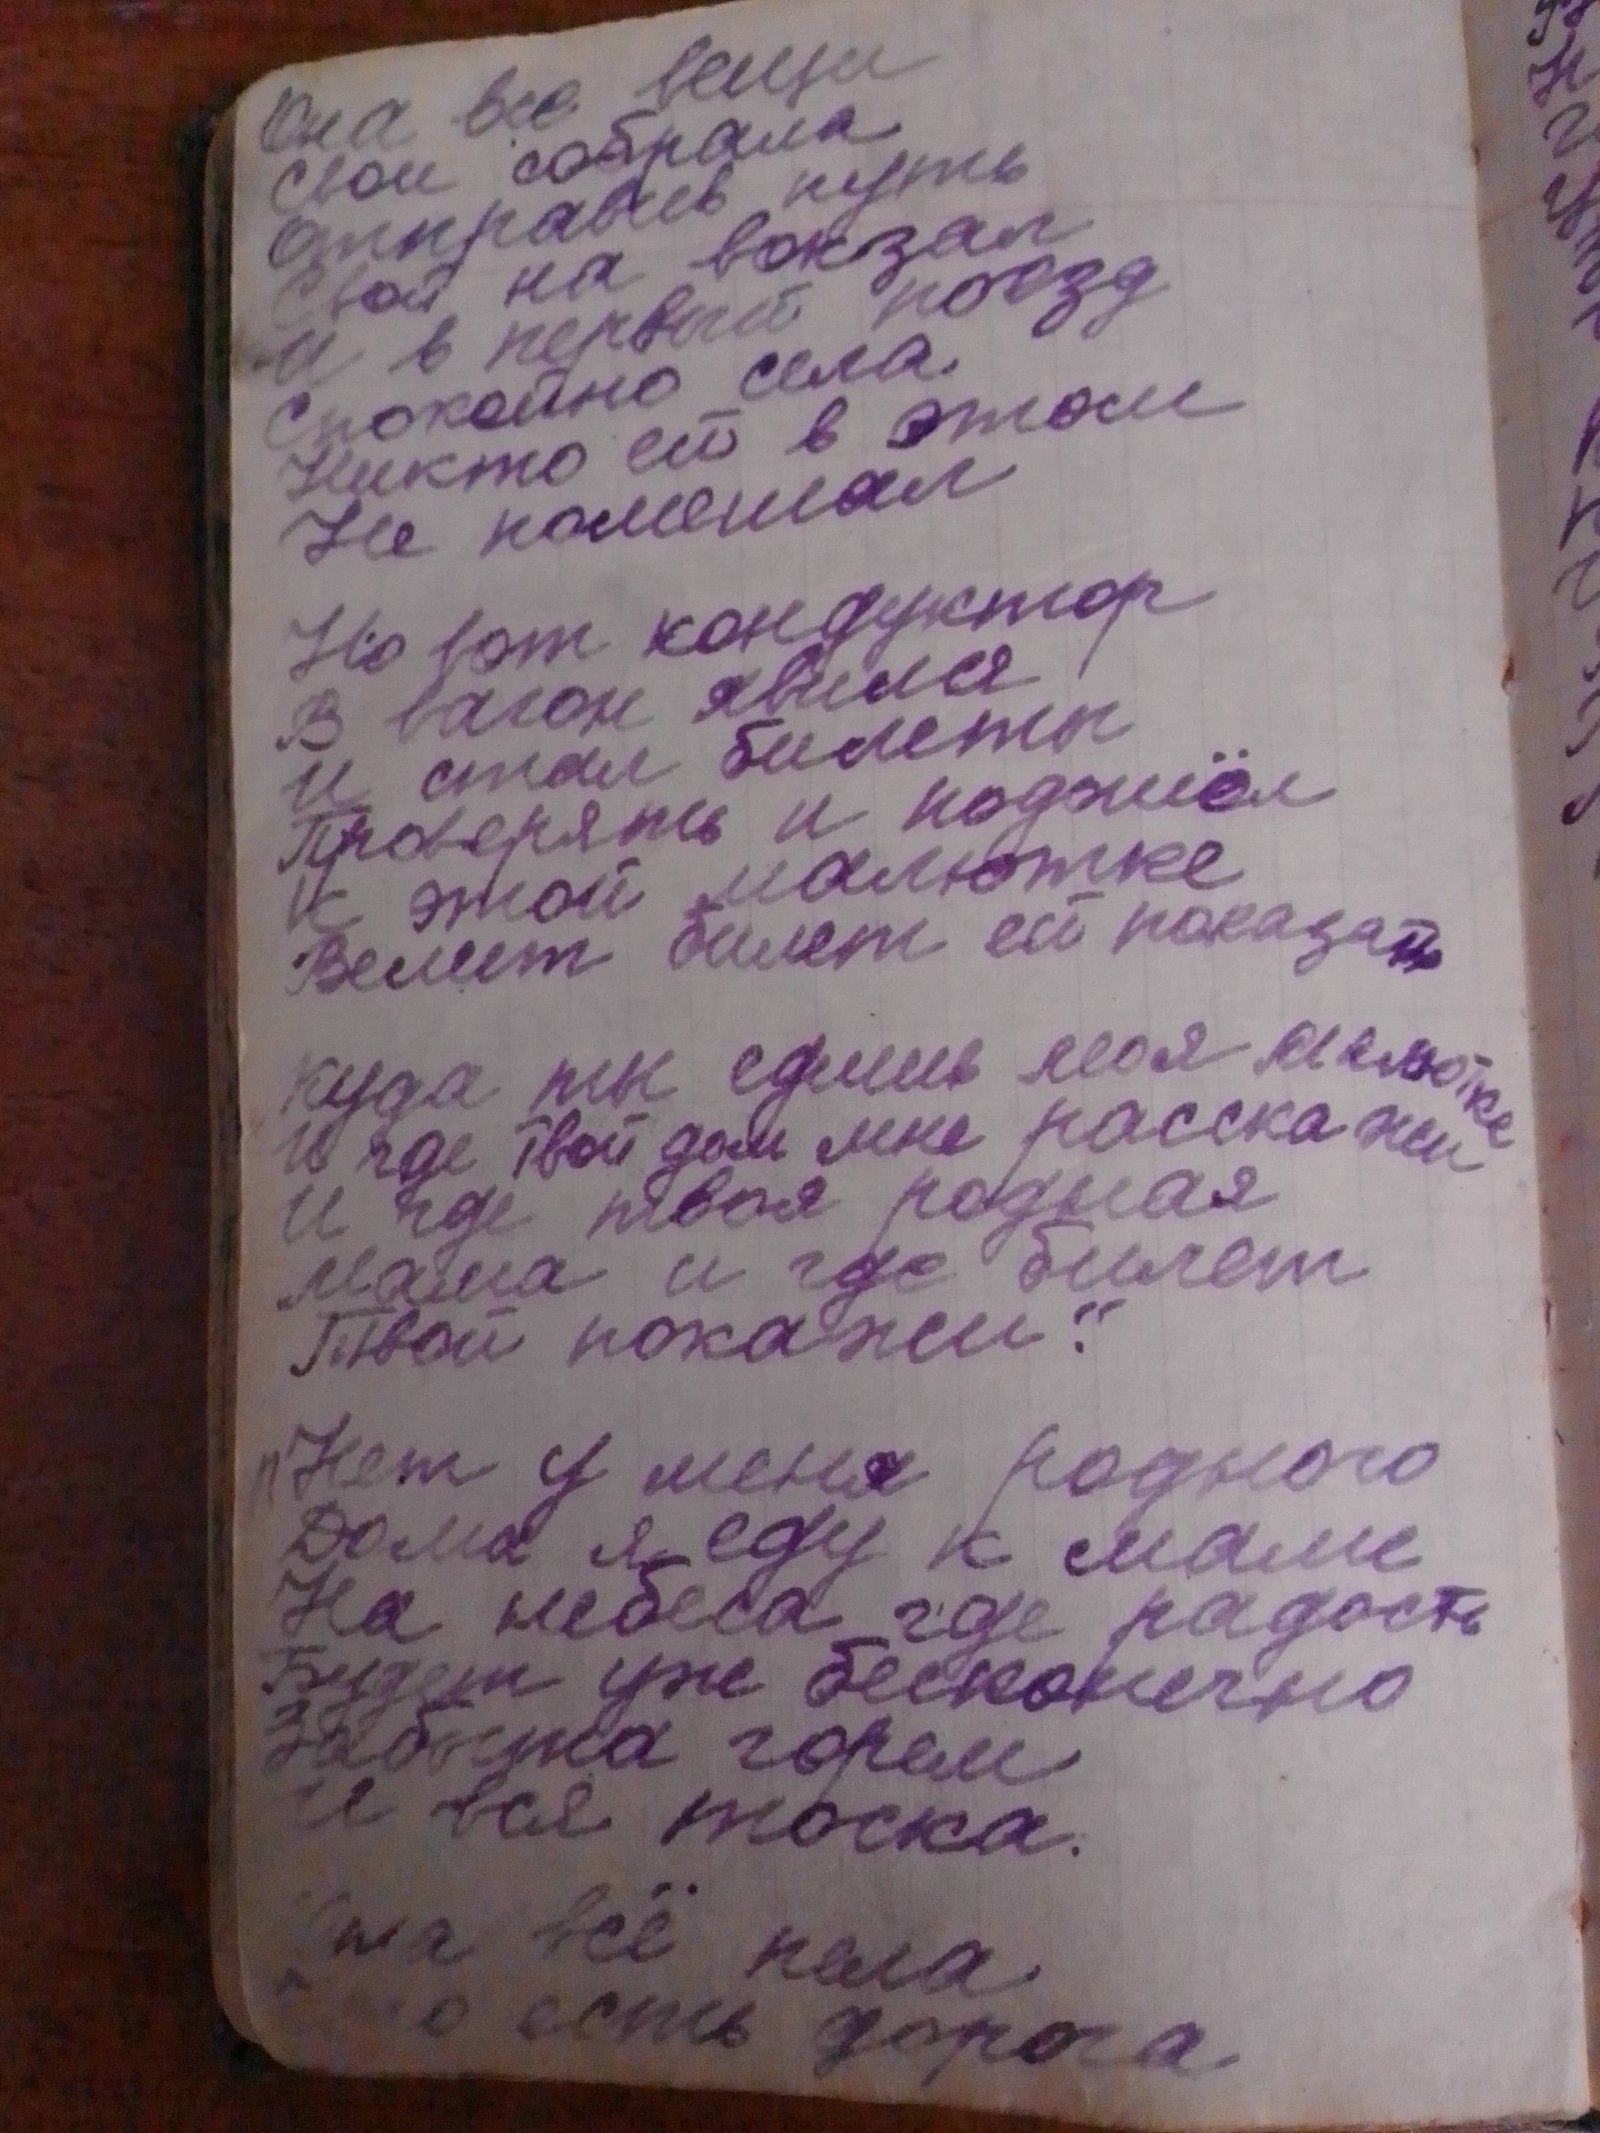 Она все вещи
свои собрала
Отправив путь
Свой на вокзал
И в первый поезд
Спокойно села.
Никто ей в этом
Не помешал
Но вот кондуктор
В вагон явился
И стал билеты
Проверять и подошёл
К этой малютке
Велит билет ей показать
Куда ты едишь моя малютке
И где твой дом мне расскажи
И где твоя родная
Мама и где билет
Твой покажи?"
"Нет у меня родного
Дома я еду к маме
На небеса где радость
Будет уже бесконечно
Забыта горем
И вся тоска.
Она всё пела
есть дорога